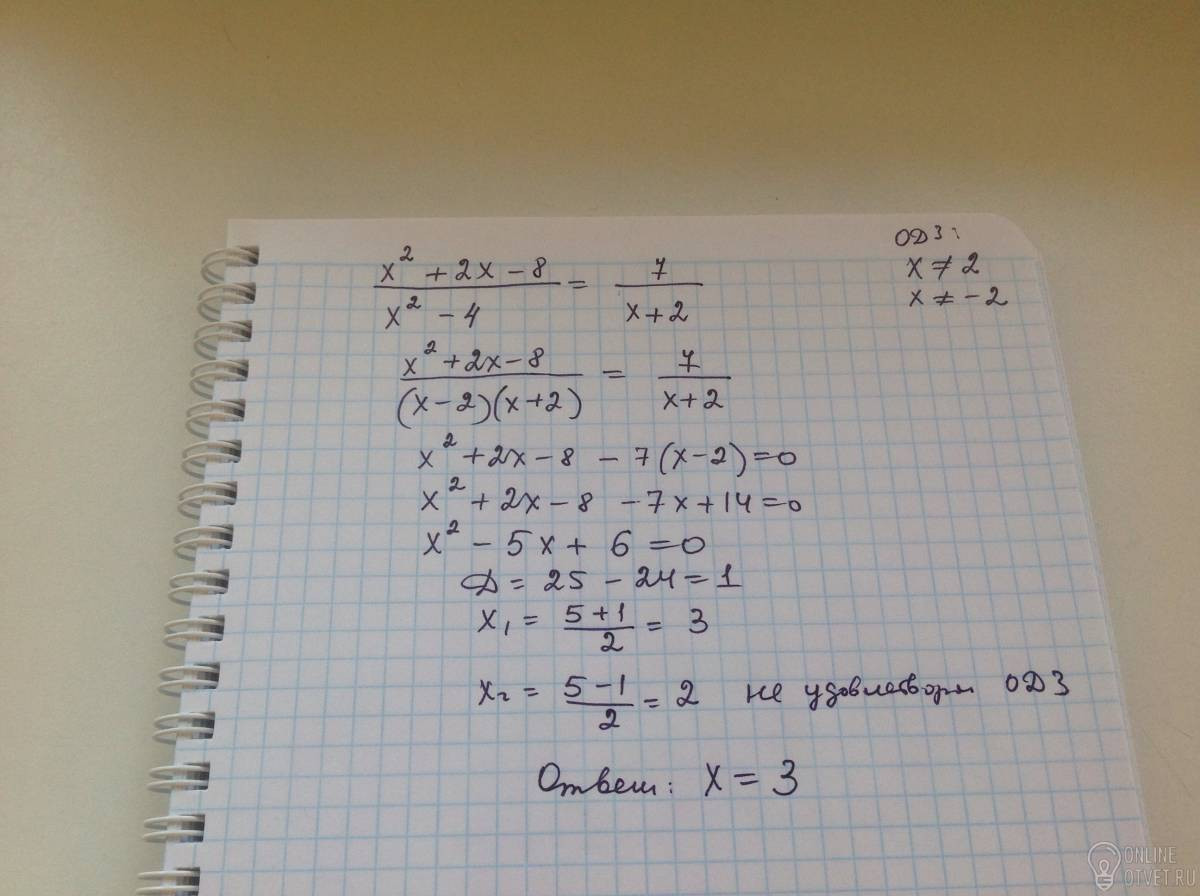 ОДЗ:
x ≠ 2
x ≠ -2
(x² + 2x - 8)/(x² - 4) = 7/(x + 2)
(x² + 2x - 8)/((x - 2)(x + 2)) = 7/(x + 2)
x² + 2x - 8 - 7(x - 2) = 0
x² + 2x - 8 - 7x + 14 = 0
x² - 5x + 6 = 0
Д = 25 - 24 = 1
x₁ = (5 + 1)/2 = 3
x₂ = (5 - 1)/2 = 2 не удовлетворяет ОДЗ
Ответ: x = 3
ONLINE
OTVET.RU